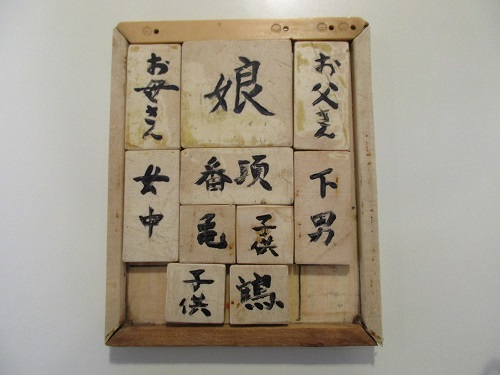 お母さん
娘
お父さん
女中
番頭
下男
亀
子供
子供
鶴